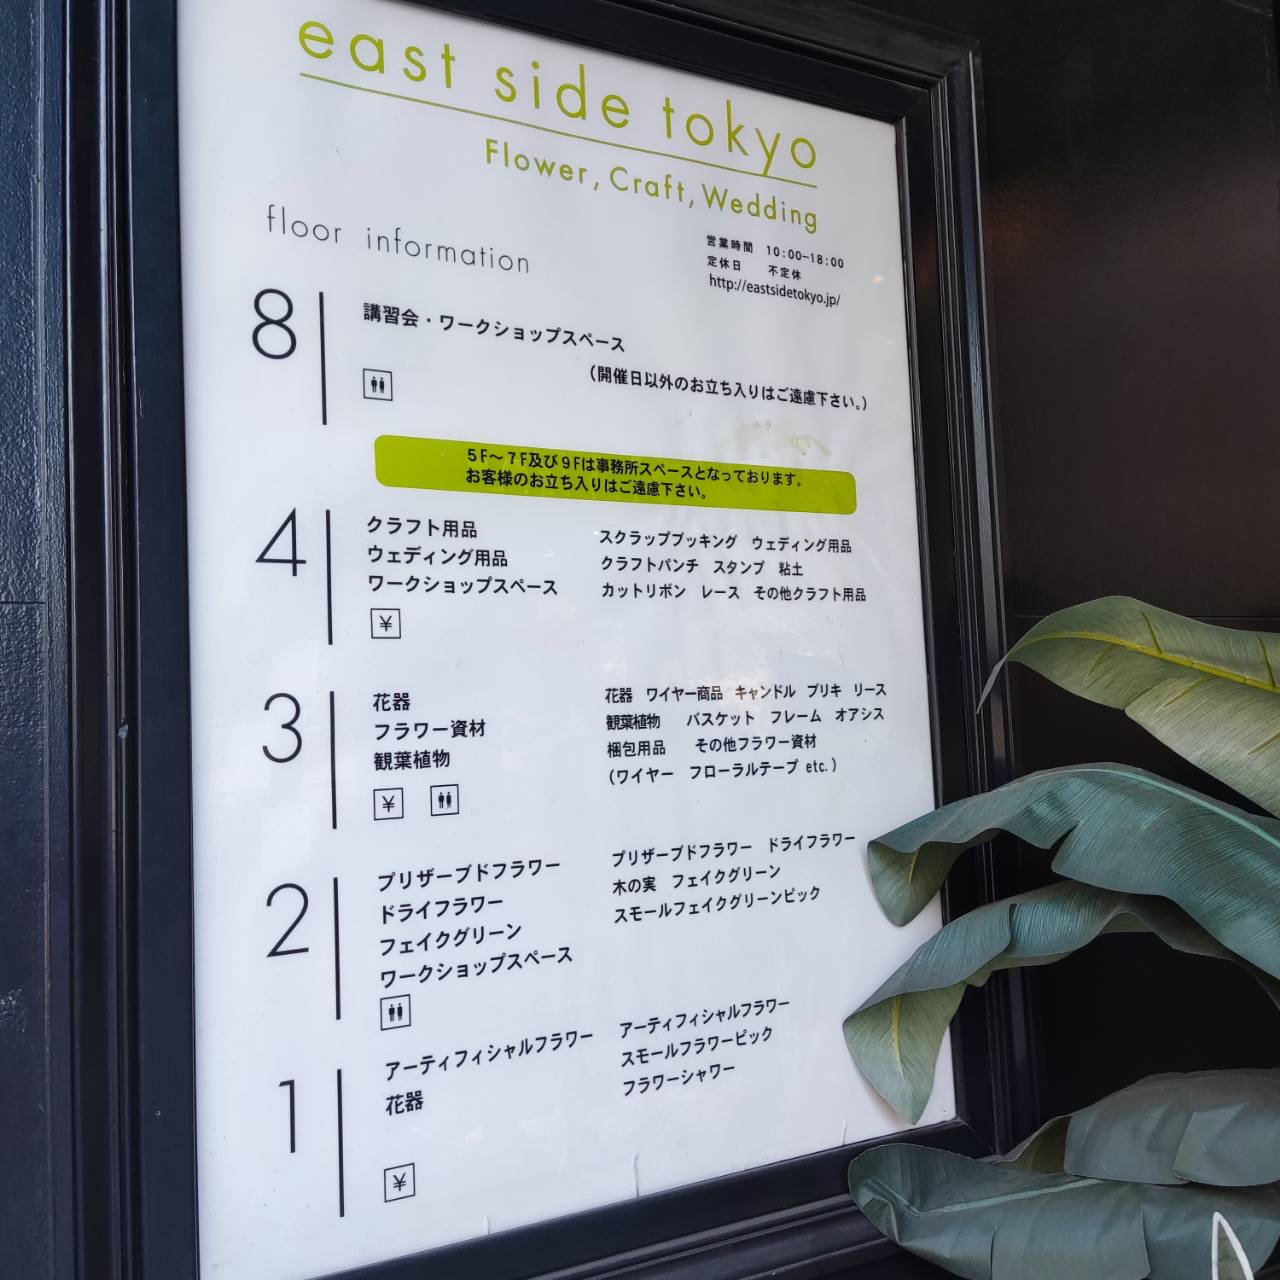 east side tokyo
Flower, Craft, Wedding
floor information
営業時間 10:00−18:00
定休日 不定休
http://eastsidetokyo.jp/
8
講習会・ワークショップスペース
（開催日以外のお立ち入りはご遠慮下さい。）
5F〜7F及び9Fは事務所スペースとなっております。
お客様のお立ち入りはご遠慮下さい。
4
クラフト用品
ウェディング用品
ワークショップスペース
¥
スクラップブッキング ウェディング用品
クラフトパンチ スタンプ 粘土
カットリボン レース その他クラフト用品
3
花器
フラワー資材
観葉植物
¥
花器 ワイヤー商品 キャンドル ブリキ リース
観葉植物 バスケット フレーム オアシス
梱包用品 その他フラワー資材
（ワイヤー フローラルテープ etc.）
2
プリザーブドフラワー
ドライフラワー
フェイクグリーン
ワークショップスペース
プリザーブドフラワー ドライフラワー
木の実 フェイクグリーン
スモールフェイクグリーンピック
1
アーティフィシャルフラワー
花器
¥
アーティフィシャルフラワー
スモールフラワーピック
フラワーシャワー